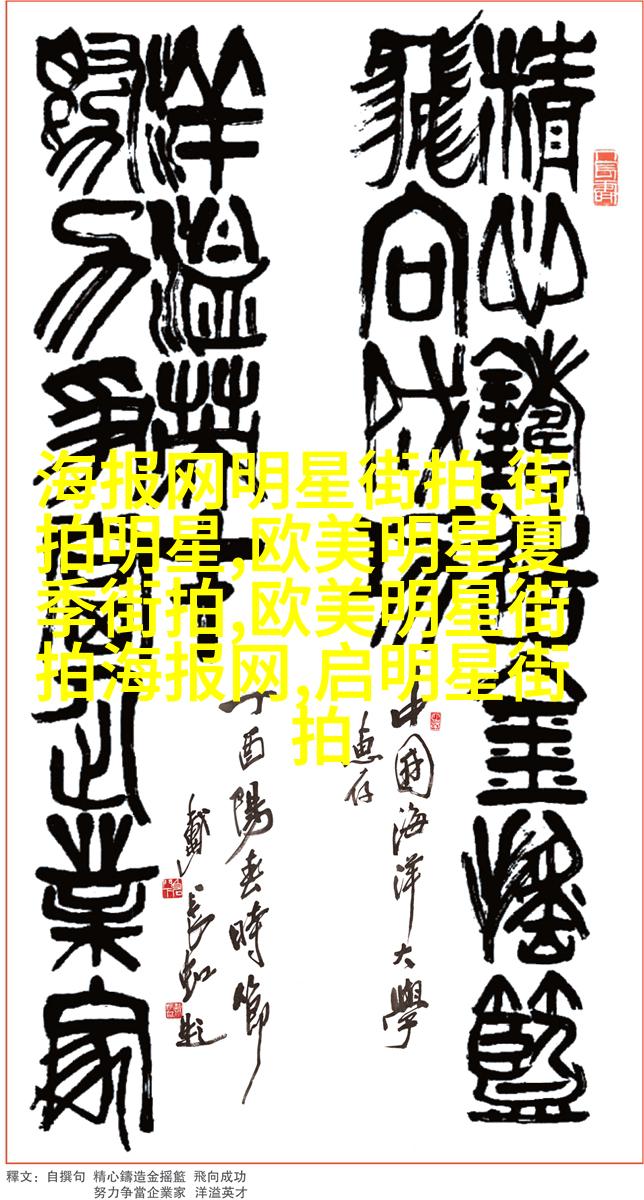 精心鑄造金摇籃
飛向成功
洋溢英才
努力争當企業家
中国海洋大學
惠存
丁酉陽春時節
戴長虹題
海报网明星街拍,街
拍明星,欧美明星夏
季街拍,欧美明星街
拍海报网,启明星街
拍
釋文：自撰句 精心鑄造金摇籃 飛向成功
努力争當企業家 洋溢英才